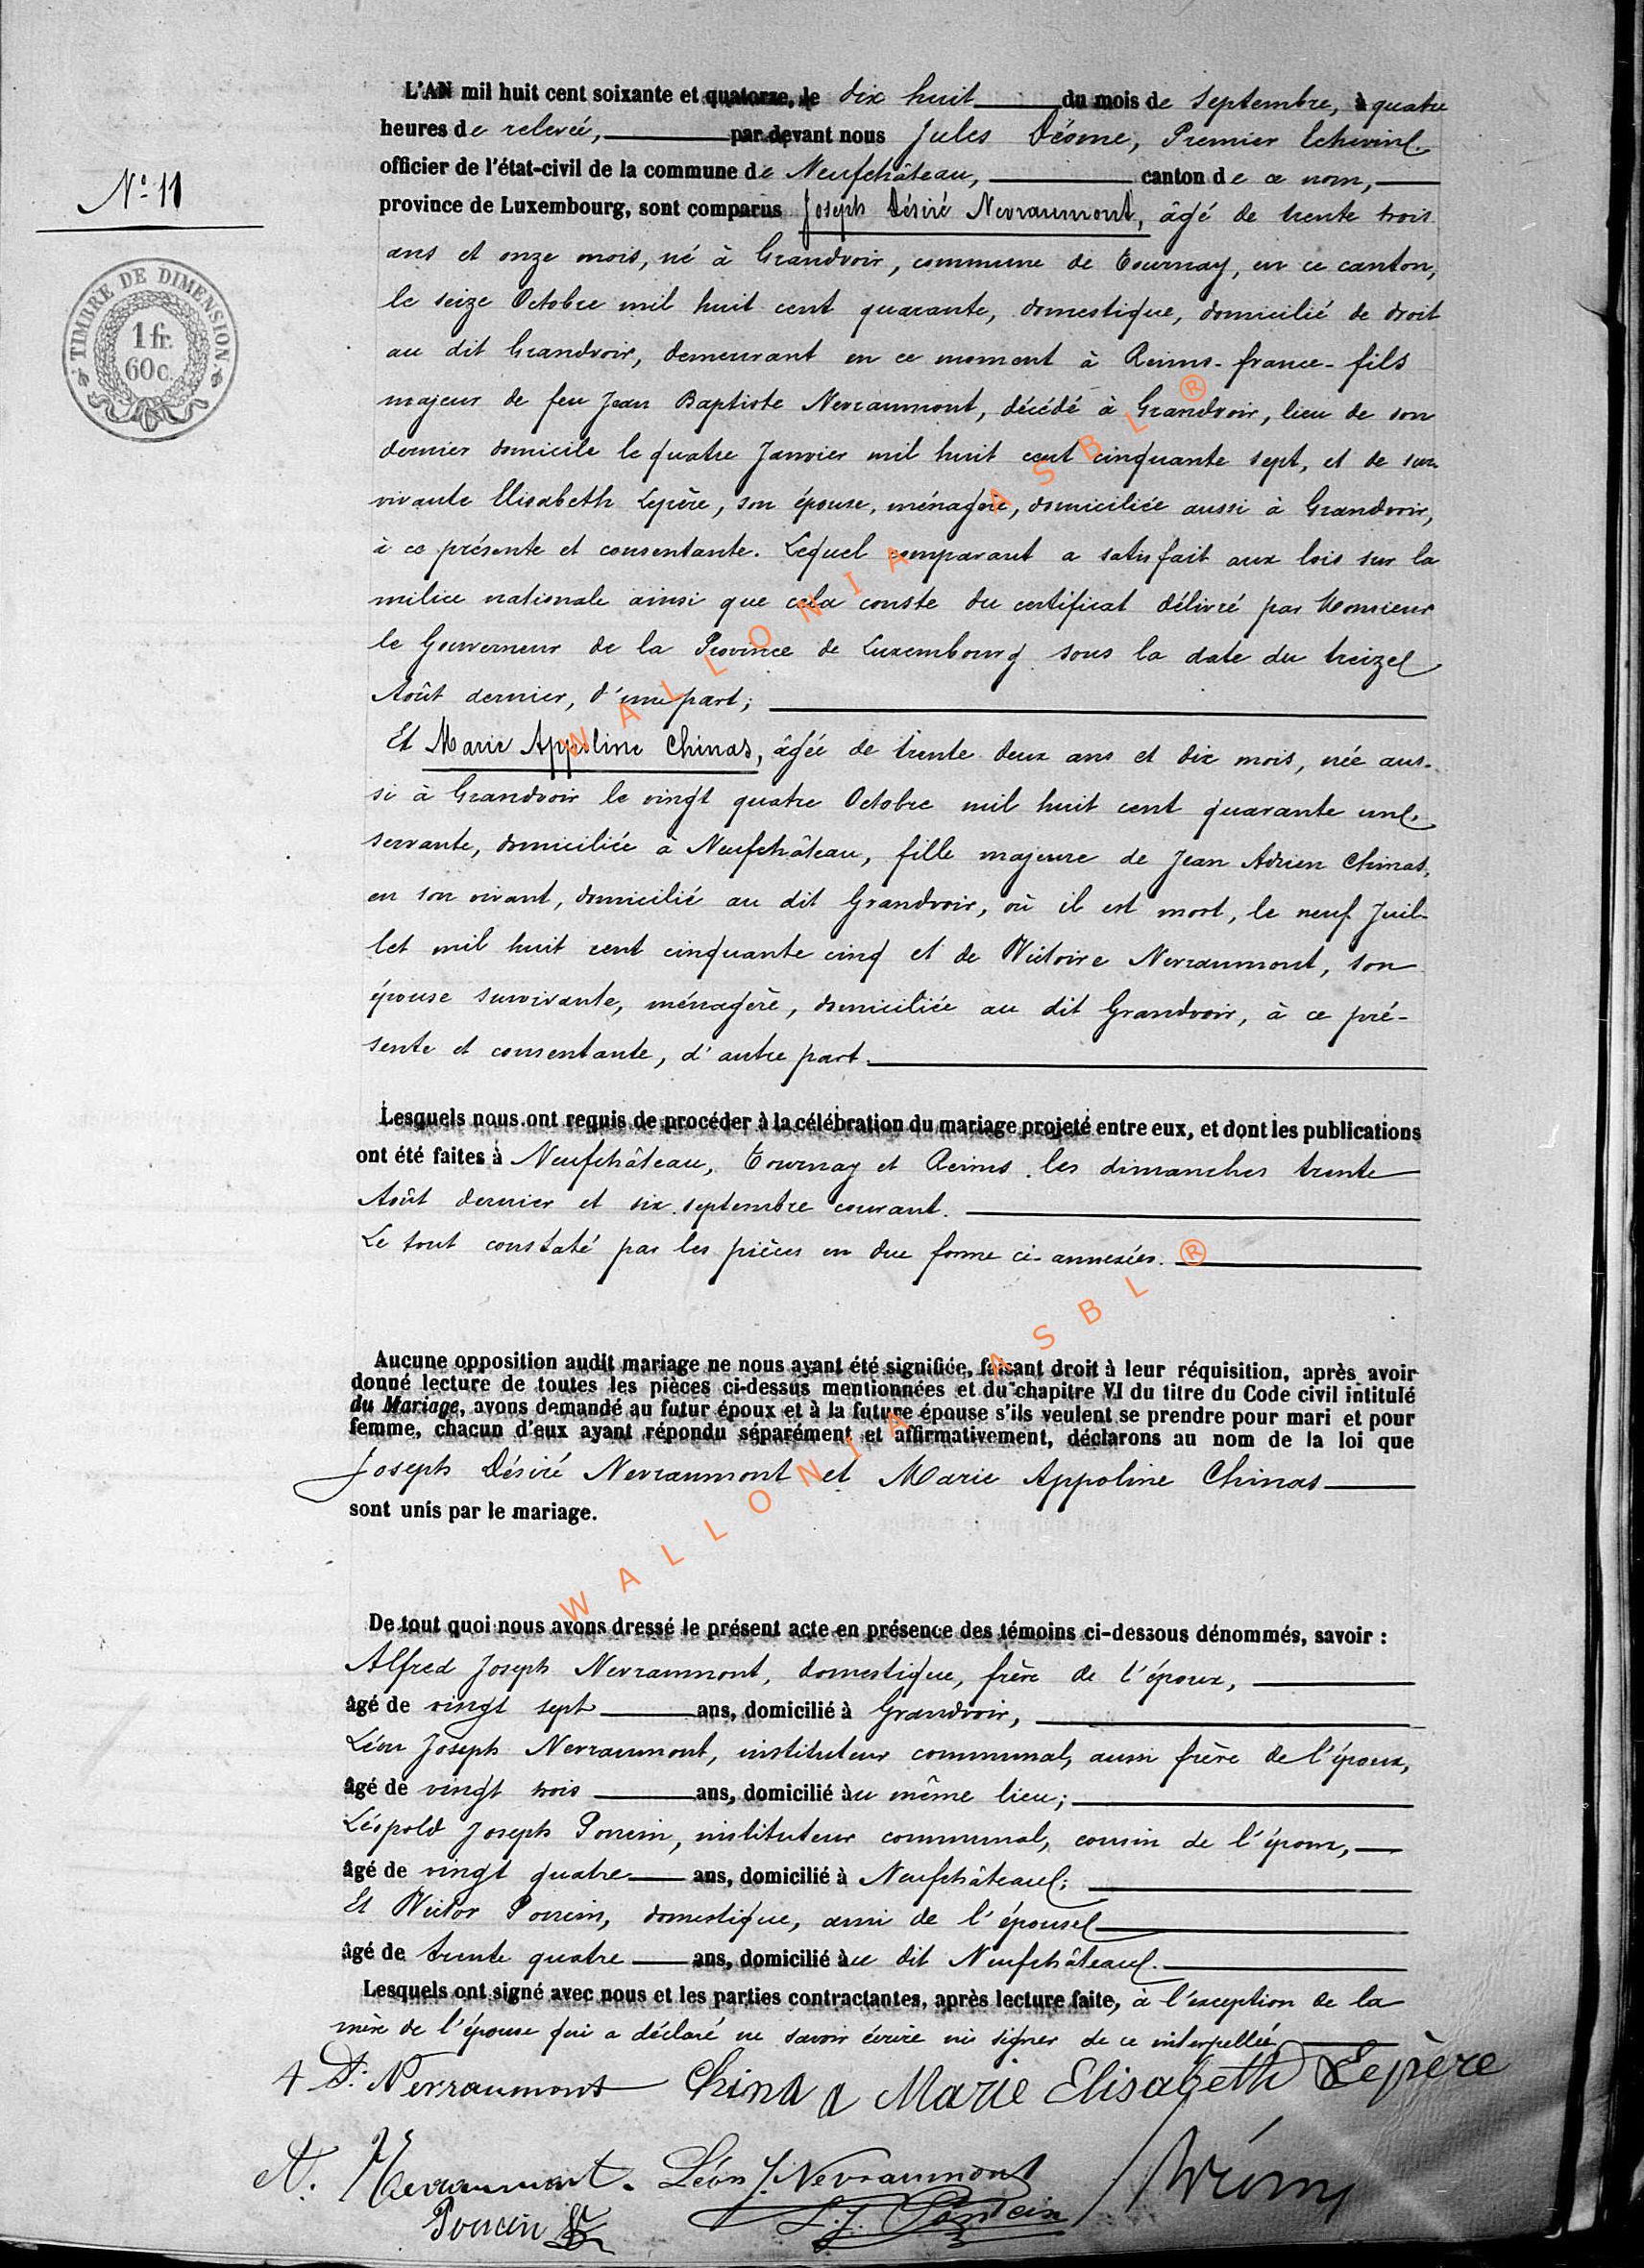 N° 11
TIMBRE DE DIMENSION
1 fr.
60 c.
L'AN mil huit cent soixante et quatorze, le dix huit du mois de Septembre, à quatre
heures de relevée, par devant nous Jules, Premier Echevin
officier de l'état-civil de la commune de Neufchâteau, canton de ce nom,
province de Luxembourg, sont comparus Joseph Désiré Nevraumont, âgé de trente trois
ans et onze mois, né à Grandvoir, commune de Tournay, en ce canton,
le seize Octobre mil huit cent quarante, domestique, domicilié de droit
au dit Grandvoir, demeurant en ce moment à Reims - france - fils
majeur de feu Jean Baptiste Nevraumont, décédé à Grandvoir, lieu de son
dernier domicile le quatre Janvier mil huit cent cinquante sept, et de sur-
vivante Elisabeth Lepère, son épouse, ménagère, domiciliée aussi à Grandvoir,
à ce présente et consentante. Lequel comparant a satisfait aux lois sur la
milice nationale ainsi que cela conste du certificat délivré par Monsieur
le Gouverneur de la Province de Luxembourg sous la date du treize
Août dernier, d'une part;
Et Marie Appoline Chinas, âgée de trente deux ans et dix mois, née aus-
si à Grandvoir le vingt quatre Octobre mil huit cent quarante un,
servante, domiciliée à Neufchâteau, fille majeure de Jean Adrien Chinas,
en son vivant, domicilié au dit Grandvoir, où il est mort, le neuf Juil-
let mil huit cent cinquante cinq et de Victoire Nevraumont, son
épouse survivante, ménagère, domiciliée au dit Grandvoir, à ce pré-
sente et consentante, d'autre part.
Lesquels nous ont requis de procéder à la célébration du mariage projeté entre eux, et dont les publications
ont été faites à Neufchâteau, Tournay et Reims les dimanches trente
Août dernier et six septembre courant.
Le tout constaté par les pièces en due forme ci-annexées.
Aucune opposition audit mariage ne nous ayant été signifiée, faisant droit à leur réquisition, après avoir
donné lecture de toutes les pièces ci-dessus mentionnées et du chapitre VI du titre du Code civil intitulé
du Mariage, avons demandé au futur époux et à la future épouse s'ils veulent se prendre pour mari et pour
femme, chacun d'eux ayant répondu séparément et affirmativement, déclarons au nom de la loi que
Joseph Désiré Nevraumont et Marie Appoline Chinas
sont unis par le mariage.
De tout quoi nous avons dressé le présent acte en présence des témoins ci-dessous dénommés, savoir :
Alfred Joseph Nevraumont, domestique, frère de l'époux,
âgé de vingt sept ans, domicilié à Grandvoir,
Léon Joseph Nevraumont, instituteur communal, aussi frère de l'époux,
âgé de vingt trois ans, domicilié au même lieu;
Léopold Joseph Poncin, instituteur communal, cousin de l'époux,
âgé de vingt quatre ans, domicilié à Neufchâteau;
Et Victor Poncin, domestique, ami de l'épouse
âgé de trente quatre ans, domicilié au dit Neufchâteau.
Lesquels ont signé avec nous et les parties contractantes, après lecture faite, à l'exception de la
mère de l'épouse qui a déclaré ne savoir écrire ni signer de ce interpellée
D. Nevraumont China a Marie Elisabeth Lepère
A. Nevraumont. Léon J. Nevraumont
Poncin L. J. Poncin
WALLONIA ASBL ®
WALLONIA ASBL ®